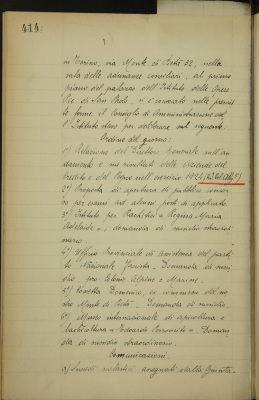 414
in Torino, via Monte di Pietà 32, nella
sala delle adunanze consiliari, al primo
piano del palazzo dell'Istituto delle Opere
Pie di San Paolo, si è convocato nelle prescrit-
te forme il Consiglio di Amministrazione del-
l'Istituto stesso per deliberare sul seguente
Ordine del giorno:
1º) Relazione del Direttore Generale sull'an-
damento e sui risultati delle Aziende del
Credito e del Pegno nell'esercizio 192
2º) Proposta di apertura di pubblico concor-
so per esami ad alcuni posti di applicato.
3º) Istituto per Rachitici "Regina Maria
Adelaide", domanda di sussidio straordi-
nario.
4º) Ufficio Provinciale di assistenza del parti-
to Nazionale Fascista. Domanda di sus-
sidio pro Colonie Alpine e Marine.
5º) Domenico
stro Monte di Pietà. Domanda di sussidio.
6º) Museo internazionale di apicoltura e
bachicoltura Doman-
da di sussidio straordinario.
Comunicazioni
a) Sussidi scolastici assegnati dalla Giunta.